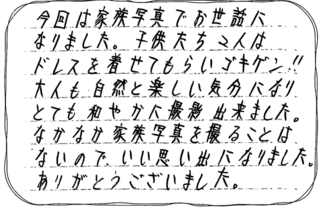 今回は家族写真でお世話に
なりました。子供たち2人は
ドレスを着せてもらいゴキゲン!!
大人も自然と楽しい気分になり
とても和やかに撮影出来ました。
なかなか家族写真を撮ることは
ないので、いい思い出になりました。
ありがとうございました。